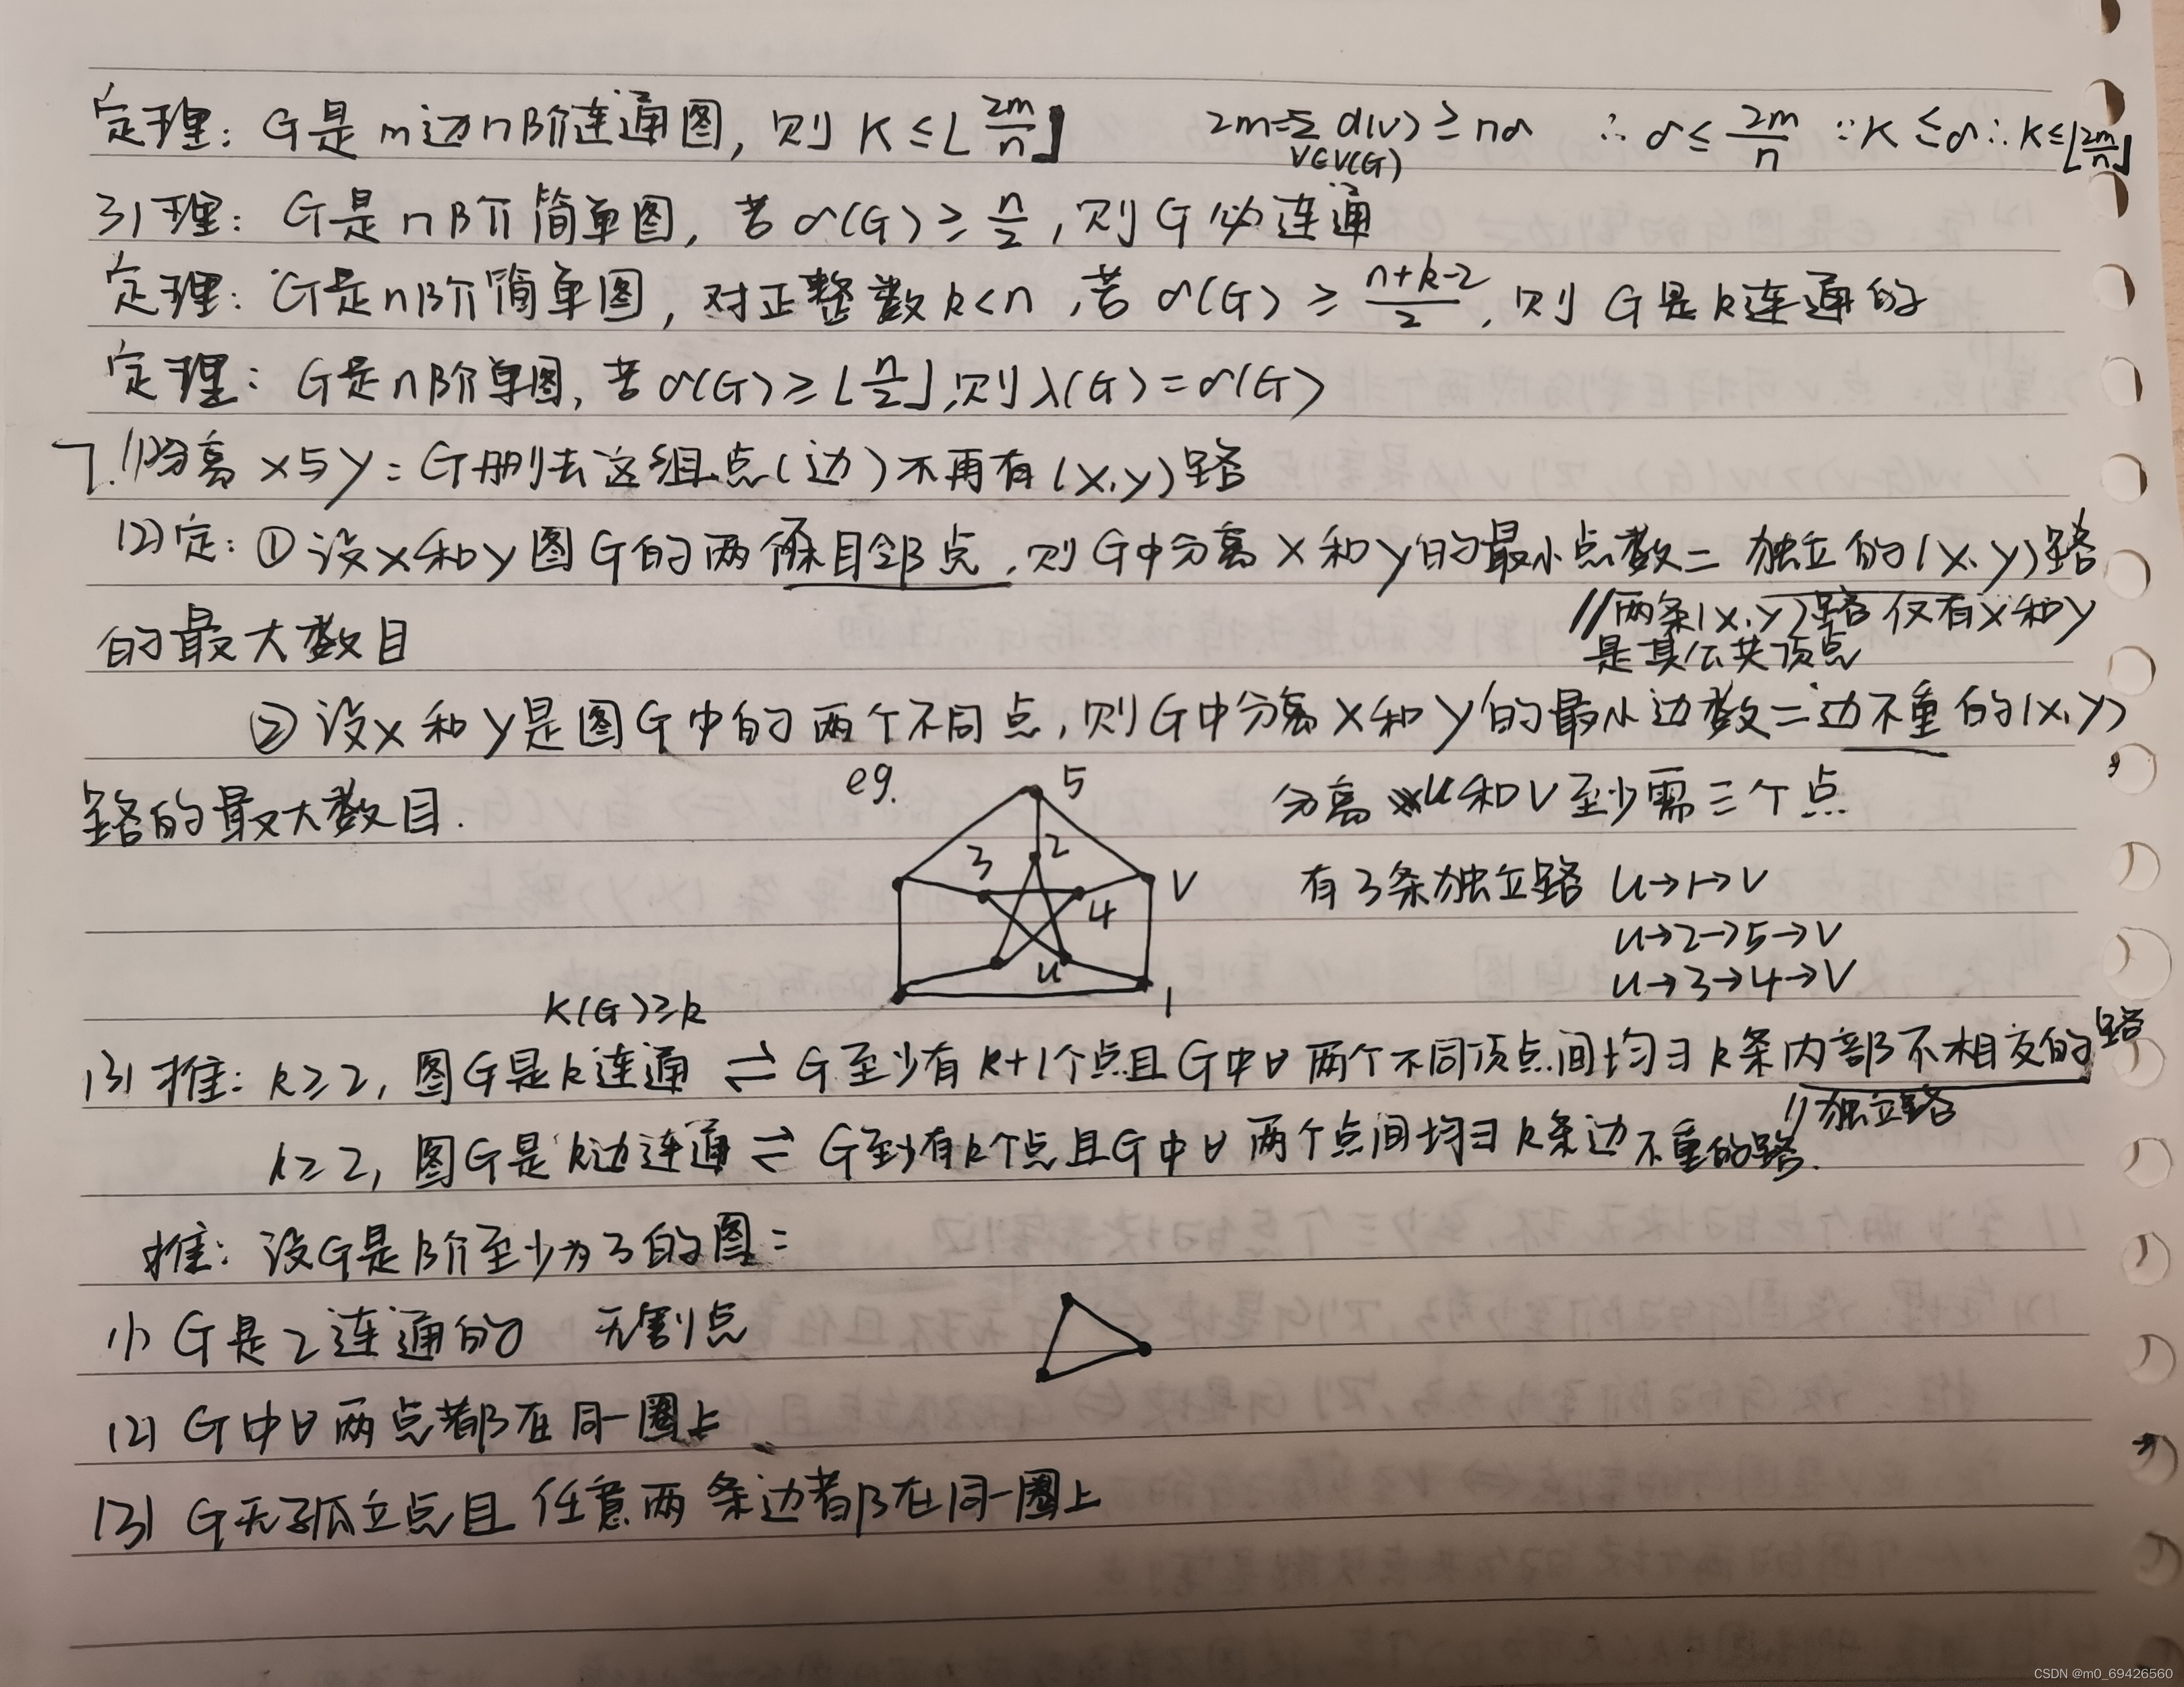 定理: G是m边n阶连通图, 则 K ≤ ⌊2m/n⌋ 2m=Σ d(v) ≥ nδ ∴ δ ≤ 2m/n ∵ K ≤ δ ∴ K ≤ ⌊2m/n⌋
v∈V(G)
引理: G是n阶简单图, 若 δ(G) ≥ n/2, 则G必连通
定理: G是n阶简单图, 对正整数k<n, 若 δ(G) ≥ (n+k-2)/2, 则 G是k连通的
定理: G是n阶单图, 若 δ(G) ≥ ⌊n/2⌋, 则 λ(G) = δ(G)
7. (1)分离 x与y: G删去这组点(边)不再有(x,y)路
(2)定: ① 设x和y图G的两个不相邻点, 则G中分离x和y的最小点数= 独立的(x,y)路
的最大数目
//两条(x,y)路仅有x和y
是其公共顶点
② 设x和y是图G中的两个不同点, 则G中分离x和y的最小边数=边不重的(x,y)
路的最大数目.
eg.
5
3
2
V
4
u
1
分离 u和v至少需三个点
有3条独立路 u→1→v
u→2→5→v
u→3→4→v
K(G)≥k
(3) 推: k≥2, 图G是k连通 ⇌ G至少有k+1个点且G中∀两个不同顶点间均∃k条内部不相交的路
//独立路
k≥2, 图G是k边连通 ⇌ G至少有k个点且G中∀两个点间均∃k条边不重的路.
推: 设G是阶至少为3的图:
(1) G是2连通的 无割点
(2) G中∀两点都在同一圈上
(3) G无孤立点且任意两条边都在同一圈上
CSDN @m0_69426560